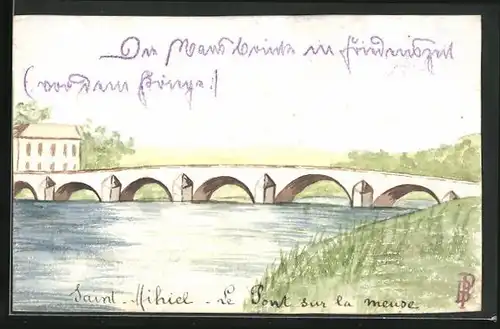 Die Maasbrücke in Friedenszeit
(vor dem Kriege!)
Saint-Mihiel - Le Pont sur la meuse